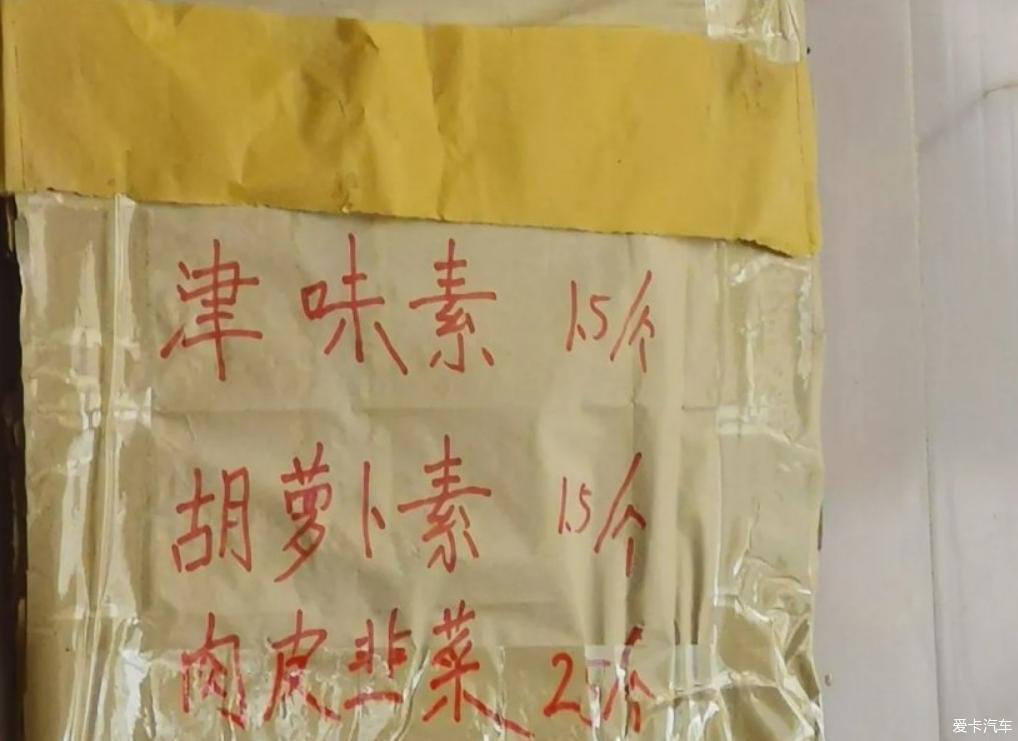 津味素 1.5/个
胡萝卜素 1.5/个
肉皮韭菜 2/个
爱卡汽车